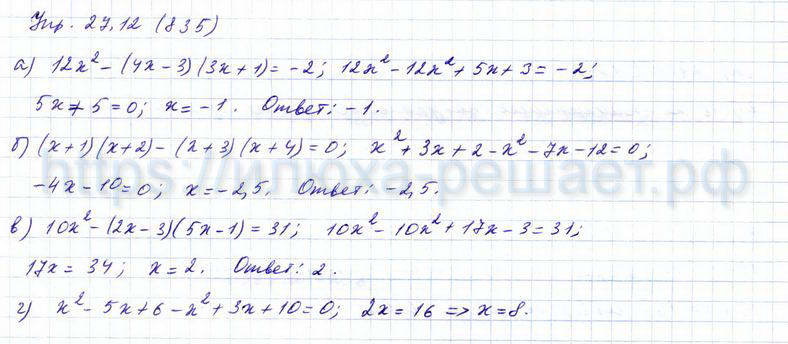 Упр. 27.12 (835)
а) 12x² - (4x - 3)(3x + 1) = -2; 12x² - 12x² + 5x + 3 = -2;
5x + 5 = 0; x = -1. Ответ: -1.
б) (x + 1)(x + 2) - (x + 3)(x + 4) = 0; x² + 3x + 2 - x² - 7x - 12 = 0;
-4x - 10 = 0; x = -2,5. Ответ: -2,5.
в) 10x² - (2x - 3)(5x - 1) = 31; 10x² - 10x² + 17x - 3 = 31;
17x = 34; x = 2. Ответ: 2.
г) x² - 5x + 6 - x² + 3x + 10 = 0; 2x = 16 => x = 8.
https://илюха-решает.рф